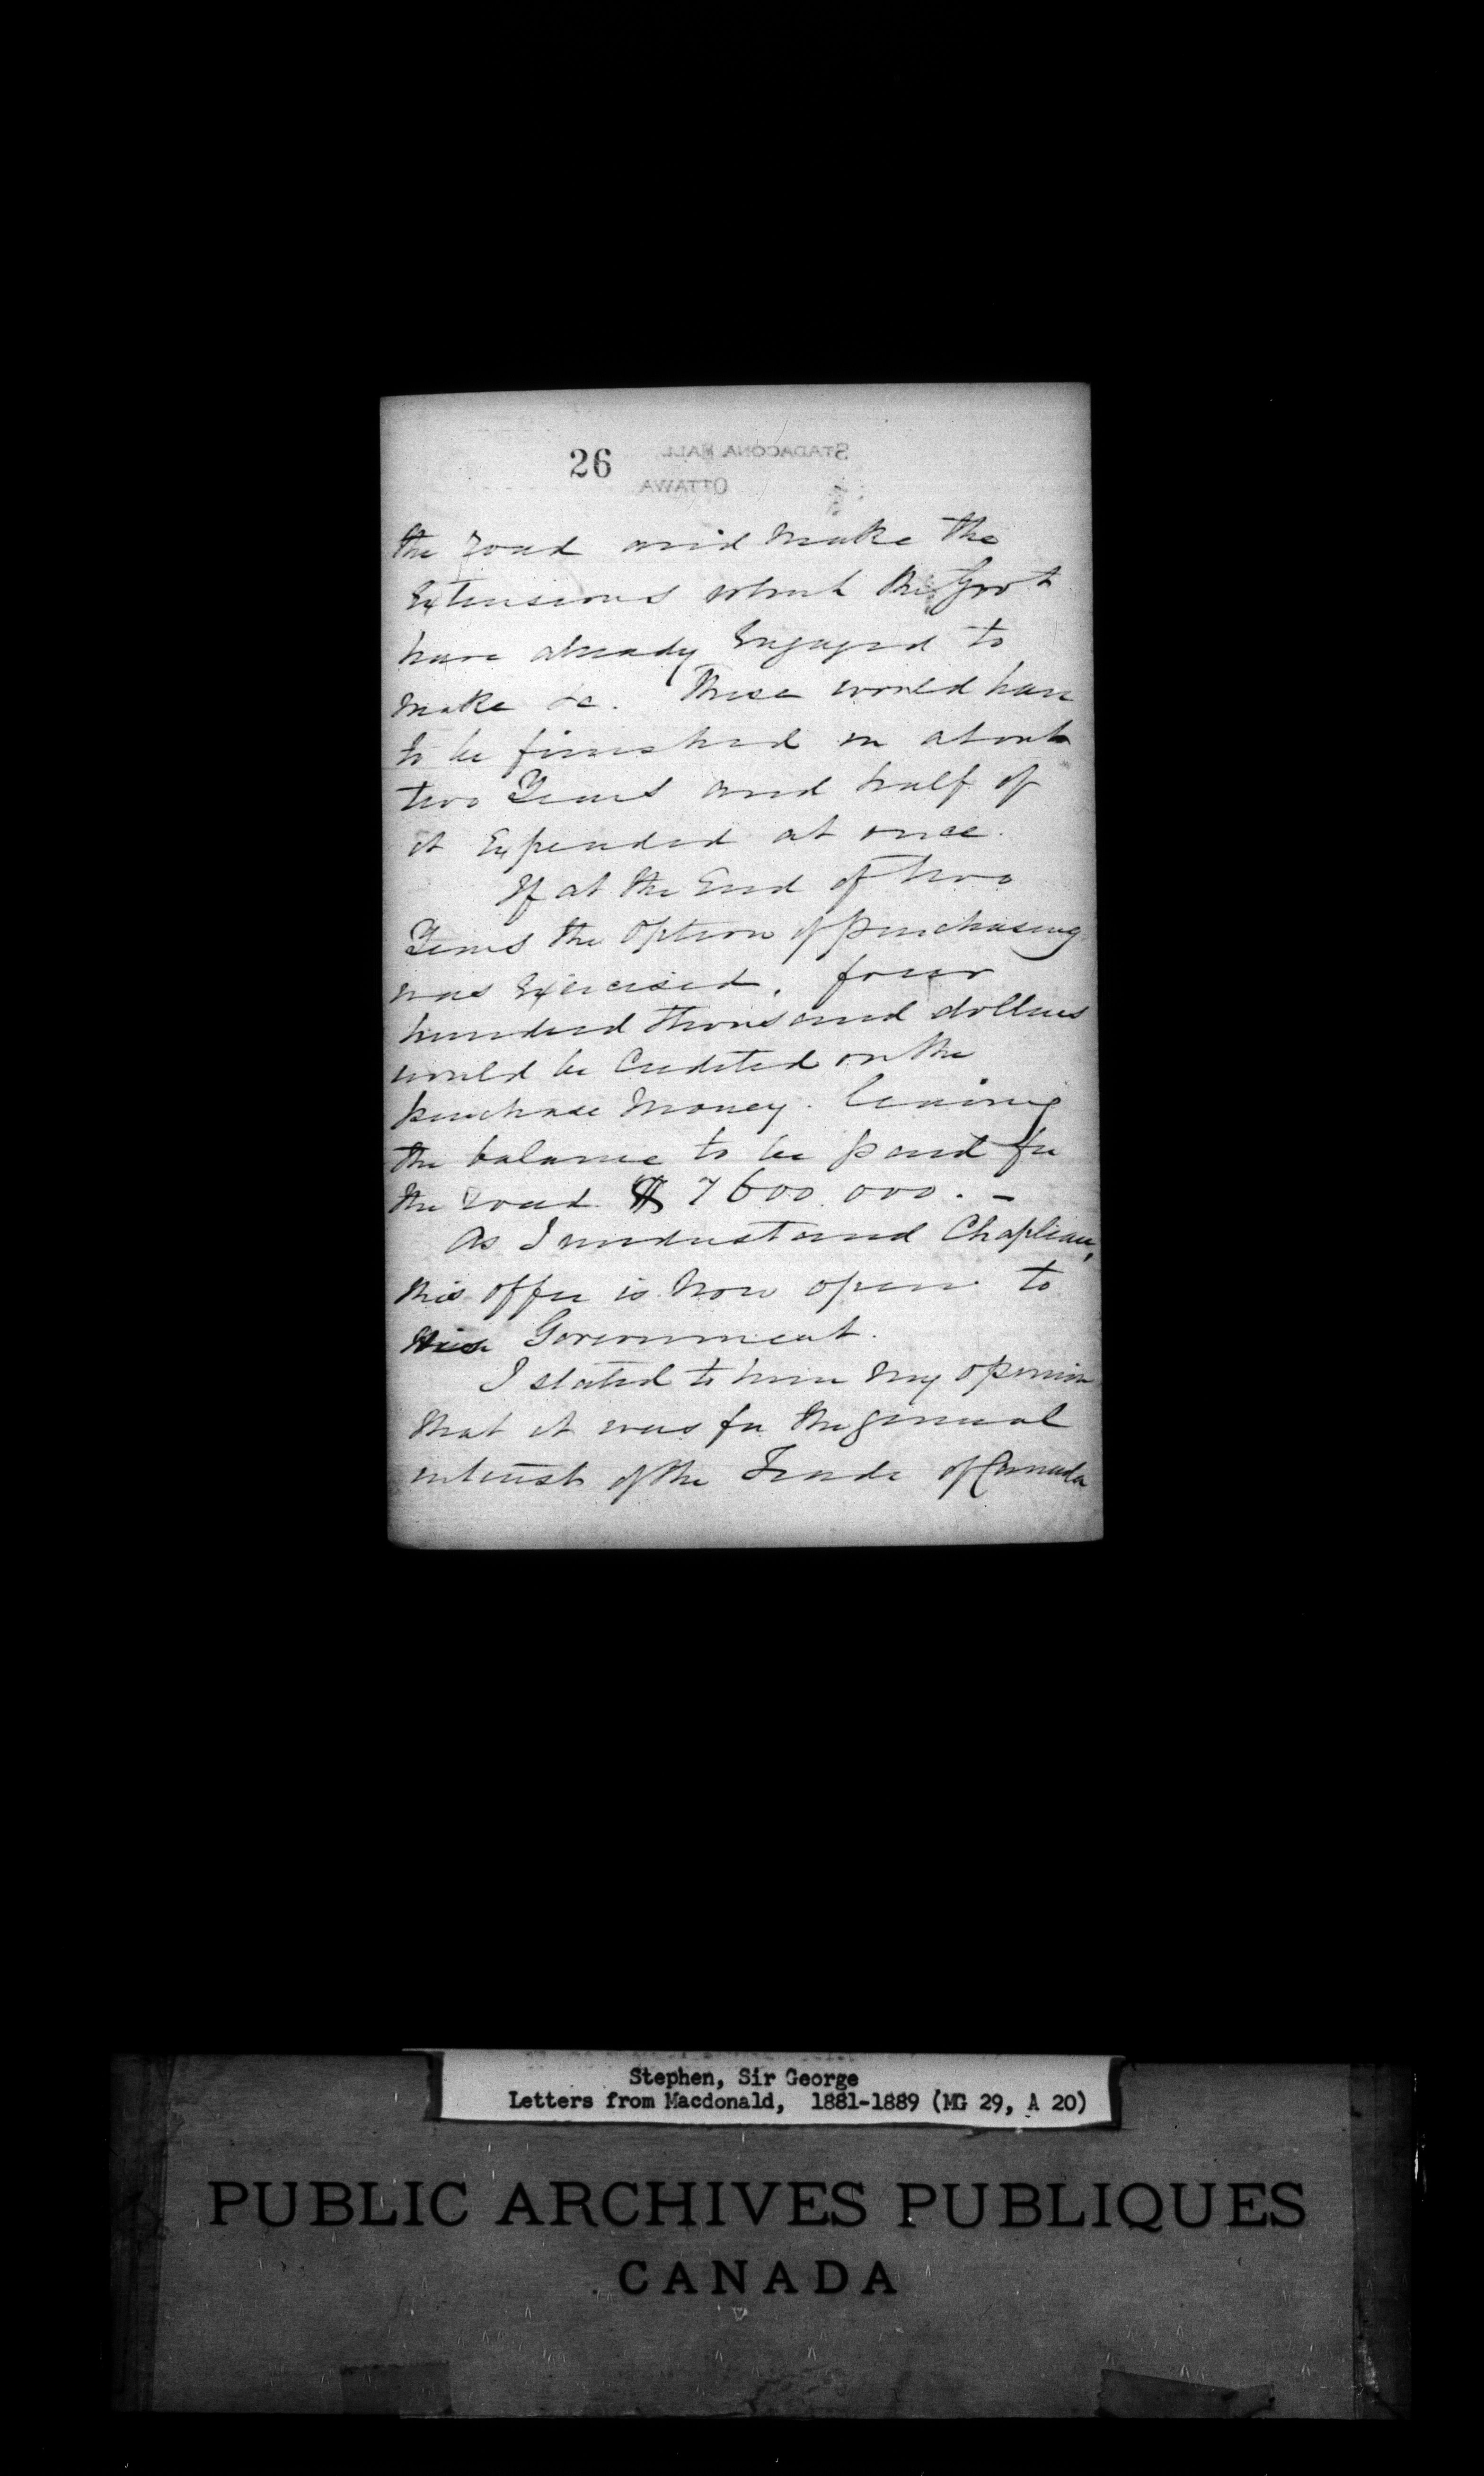 26
STADACONA HALL
OTTAWA
the road and make the
Extensions which the Govt
have already Engaged to
make &c. These would have
to be finished in about
two Years and half of
it Expended at once.
If at the End of two
Years the option of purchasing
was Exercised, four
hundred thousand dollars
would be Credited on the
purchase Money. leaving
the balance to be paid for
the road $7600.000. -
As I understand Chapleau,
this offer is now open to
Government.
I stated to him my opinion
that it was for the general
interest of the Trade of Canada
Stephen, Sir George
Letters from Macdonald, 1881-1889 (MG 29, A 20)
PUBLIC ARCHIVES PUBLIQUES
CANADA